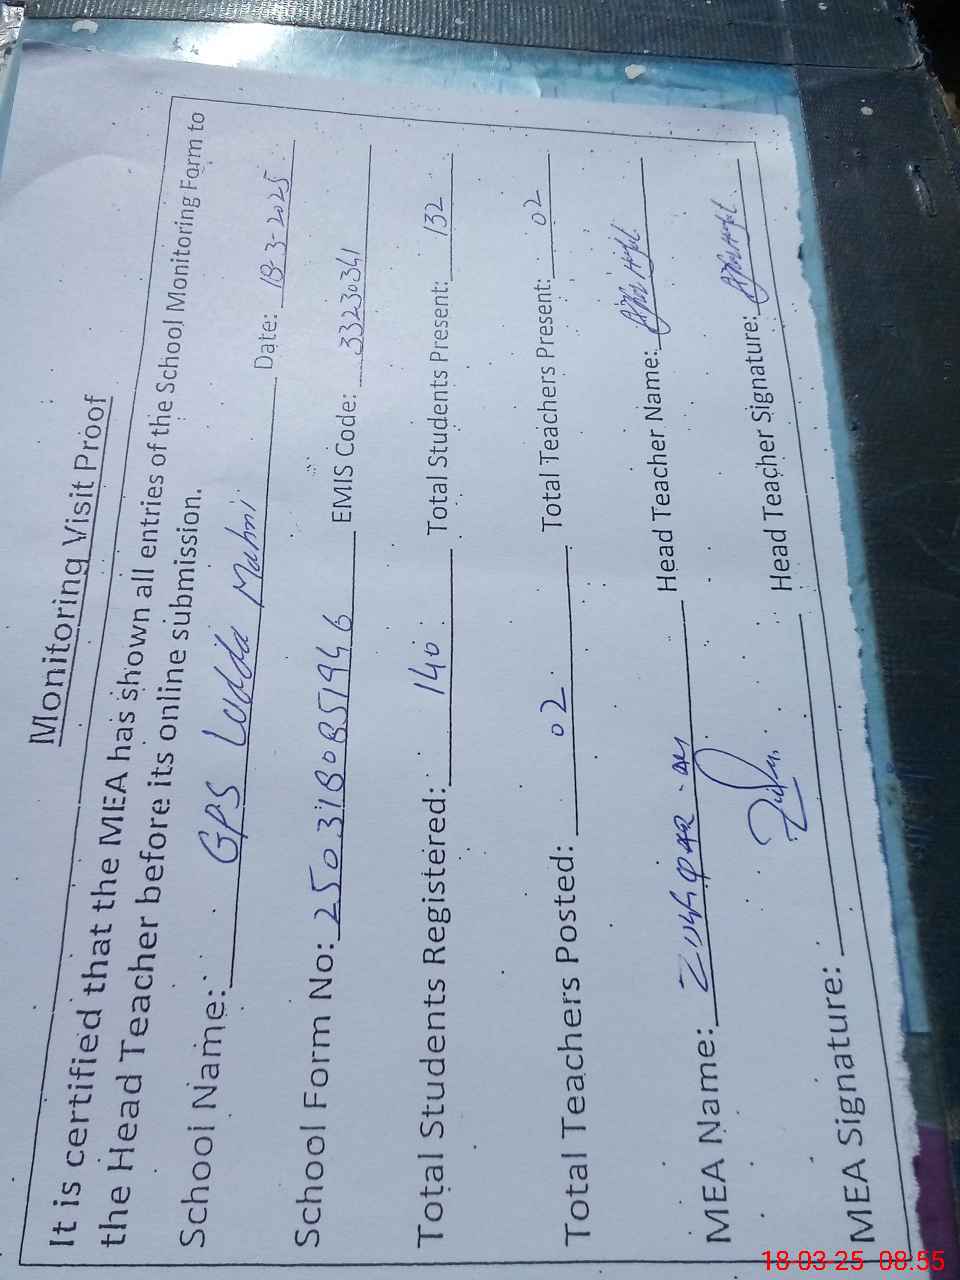 Monitoring Visit Proof
It is certified that the MEA has shown all entries of the School Monitoring Form to
the Head Teacher before its online submission.
School Name: GPS Ludda Mahni Date: 18-3-2025
School Form No: 2503180851946 EMIS Code: 33230341
Total Students Registered: 140 Total Students Present: 132
Total Teachers Posted: 02 Total Teachers Present: 02
MEA Name: Head Teacher Name:
MEA Signature: Head Teacher Signature:
18-03-25 08:55